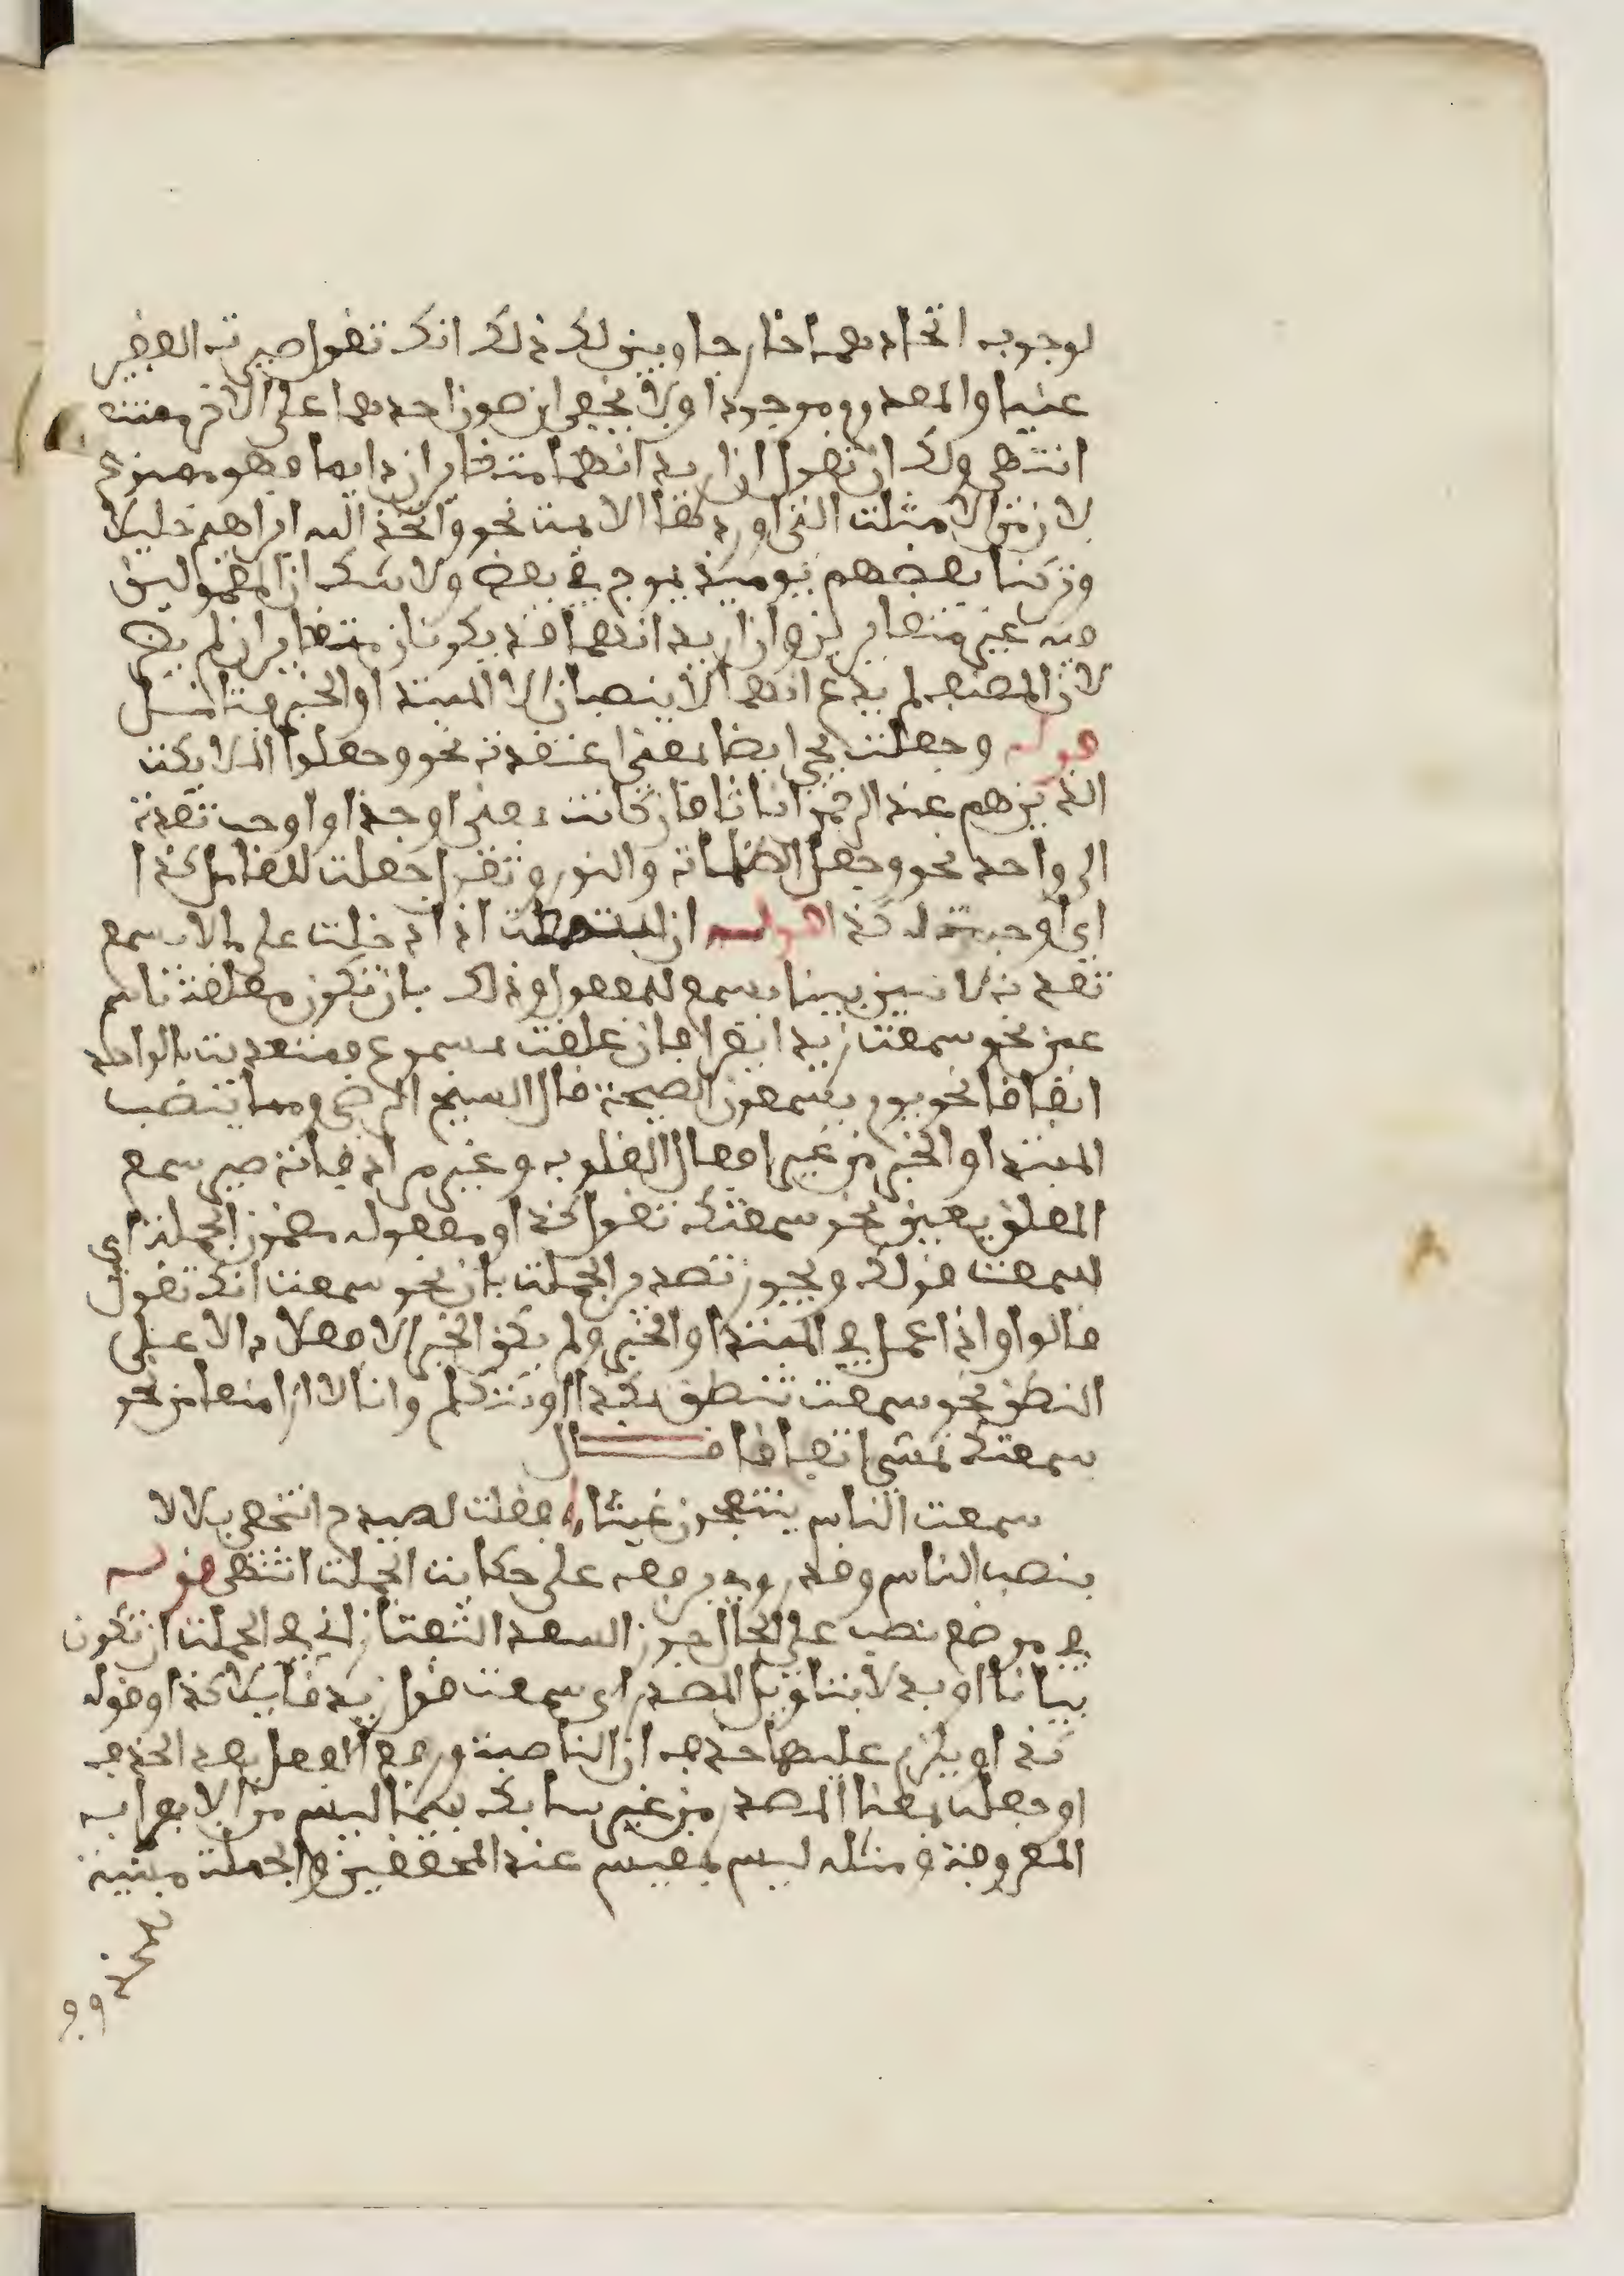 لوجوب اتحادهما خارجا وبين لك ذلك انك تقول صيرت الفقير
غنيا والمعدوم موجودا ولا يخفى ان صون احدهما على الاخر ممتنع
انتهى ولك ان تقول ان اريد انهما متغايران دايما فهو ممنوع
لان من الامثلة التي اوردها الايمة نحو واتخذ الله ابراهيم خليلا
وتركنا بعضهم يوميذ يموج في بعض ولا شك ان المفعولين
فيه غير متغايرين وان اريد انهما قد يكونان متغايرين لم يضر
لان المصنف لم يدع انهما لا ينصبان الا المبتدا والخبر فتامل
قوله وجعلت يجي ايضا بمعنى اعتقدت نحو وجعلوا الملايكة
الذين هم عند الرحمن اناثا فان كانت بمعنى اوجد او اوجب تعدت
الى واحد نحو وجعل الظلمات والنور وتقول جعلت للعامل كذا
اي اوجبت له كذا قوله ان اذا دخلت على ما لا يسمع
تعدت لاثنين بينا يسمع للمفعول وذلك بان تكون معلقة باسم
عين نحو سمعت زيدا يقرا فان علقت بمسموع فمتعدية لواحد
اتفاقا نحو يوم يسمعون الصيحة قال الشيخ الرضي ومما ينصب
المبتدا والخبر من غير افعال القلوب وغير مرادفاته صير سمع
المعلق بعين نحو سمعتك تقول كذا ومفعوله مضمون الجملة اي
سمعت قولك ويجوز تصدير الجملة بان نحو سمعت انك تقول
قالوا واذا عمل في المبتدا والخبر ولم يكن الخبر الا فعلا دالا على
النطق نحو سمعت تنطق بكذا او تتكلم وانا لا ارى منعا من نحو
سمعتك تمشي اتفاقا قال
سمعت الناس ينتجعون غيثا فقلت لصيدح انتجعي بلالا
بنصب الناس وقد روي برفعه على حكاية الجملة انتهى قوله
في موضع نصب على الحال جوز السعد التفتازاني في الجملة ان تكون
بيانا او بدلا بتاويل المصدر اي سمعت قول زيد قايلا كذا وقوله
كذا ويلزم عليها حذف ان الناصبة ورفع الفعل بعد الحذف
او جعله بمعنى المصدر من غير سابك بينا ليس من الابواب
المعروفة ومثله ليس بمقيس عند المحققين والجملة مبنية